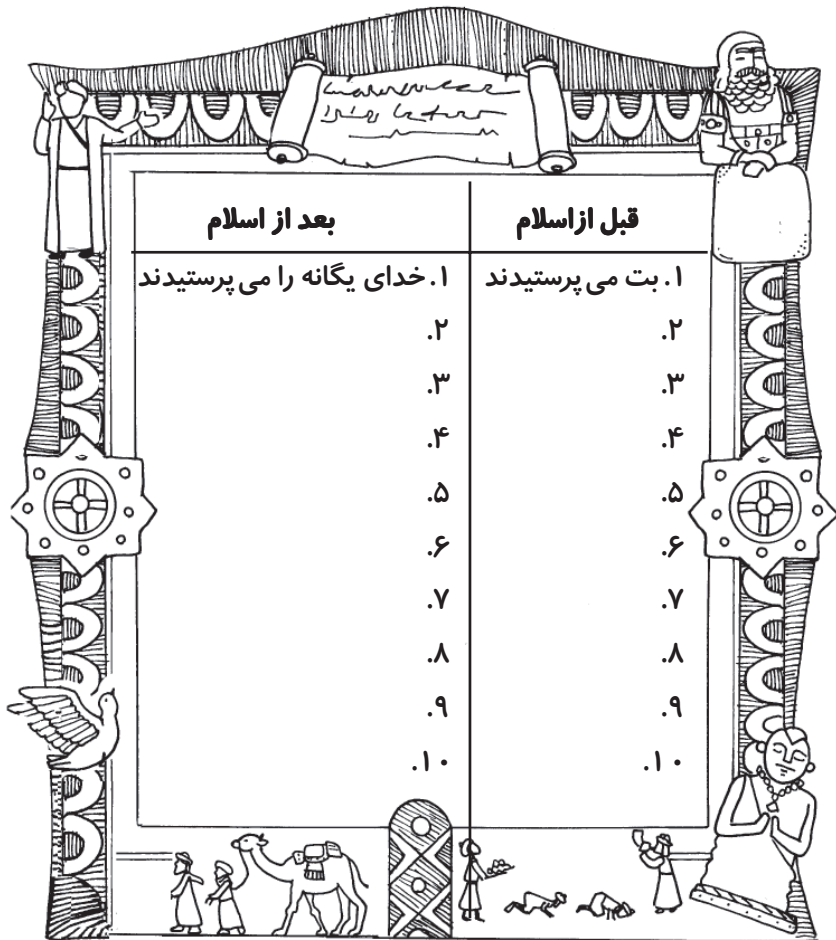 قبل ازاسلام	بعد از اسلام
۱. بت می‌پرستیدند	۱. خدای یگانه را می‌پرستیدند
۲.	۲.
۳.	۳.
۴.	۴.
۵.	۵.
۶.	۶.
۷.	۷.
۸.	۸.
۹.	۹.
۱۰.	۱۰.